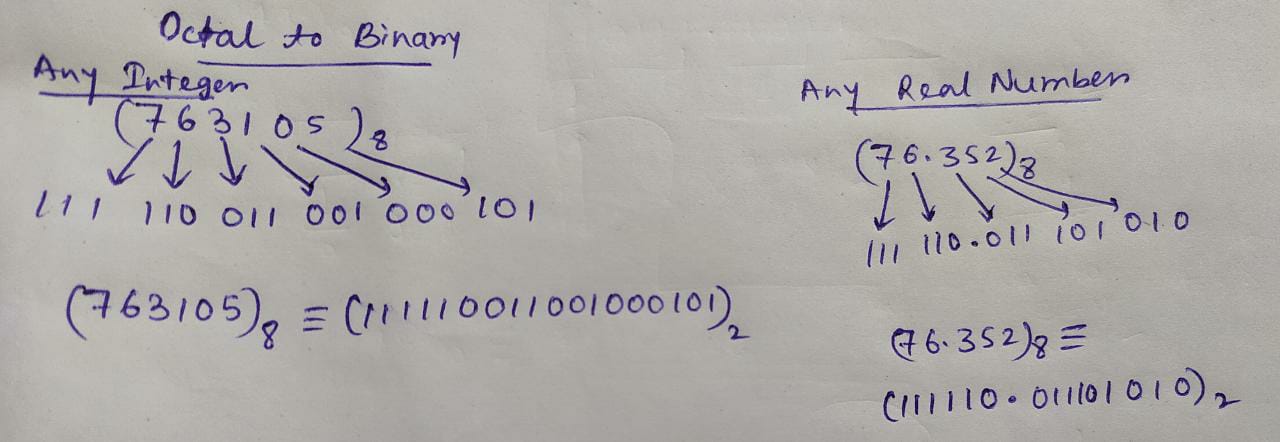 Octal to Binary
Any Integer
(763105)8
111 110 011 001 000 101
(763105)8 ≡ (111110011001000101)2
Any Real Number
(76.352)8
111 110.011 101 010
(76.352)8 ≡
(111110.011101010)2